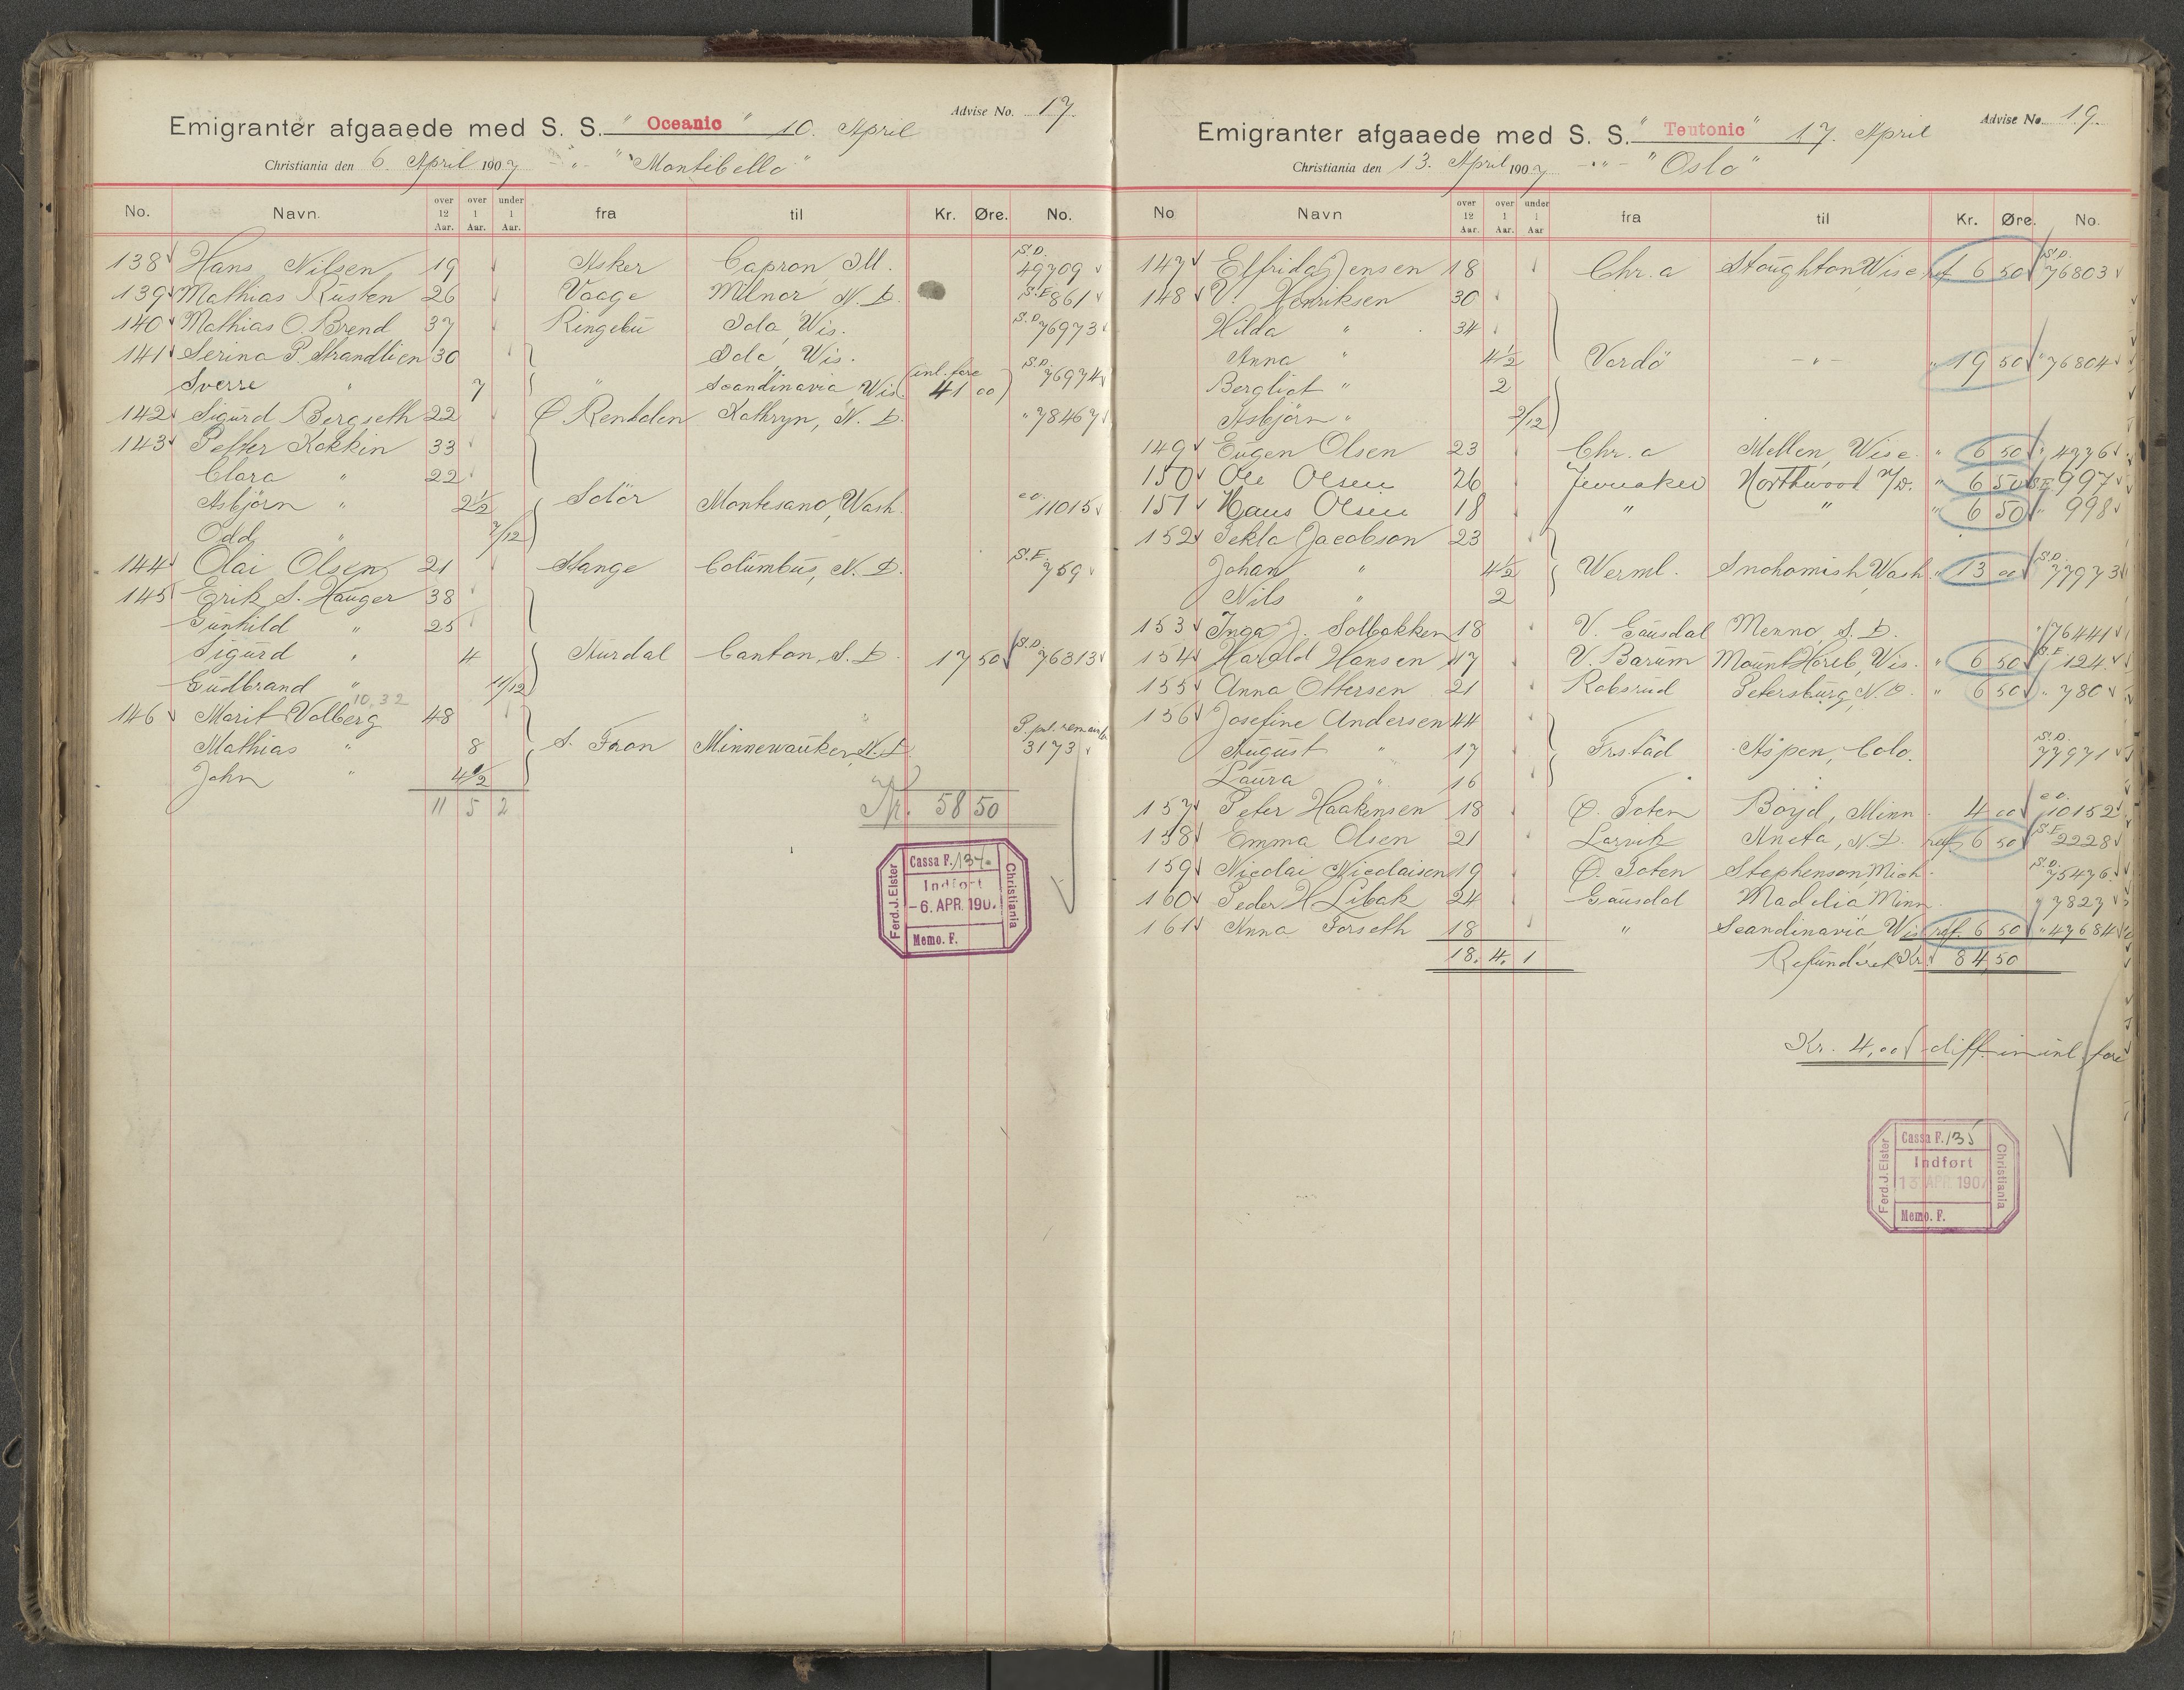 Advise No. 17.
Emigranter afgaaede med S. S. "Oceanic" 10. April
Christiania den 6. April 1907 - " - "Montebello"
No. Navn. over 12 Aar. over 1 Aar. under 1 Aar. fra til Kr. Øre. No.
138 Hans Nilsen 19 Asker Capron, Ill. S.D. 49709
139 Mathias Rusten 26 Vaage Milnor, N. D. S.E. 861
140 Mathias O. Brend 37 Ringebu Iola, Wis. S.D. 76973
141 Serina P. Strandlien 30 Iola, Wis.
Sverre " 7 " Scandinavia Wis. (inl. fare 41 00) S.D. 76974
142 Sigurd Bergseth 22 Ø Rendalen Kathryn, N. D. " 78467
143 Petter Kokkin 33
Clara " 22
Asbjörn " 2 1/2 Solör Montesano, Wash. 11015
Odd " 7/12
144 Olai Olsen 21 Stange Columbus, N. D. S.E. 759
145 Erik S. Hauger 38
Gunhild " 25
Sigurd " 4 Aurdal Canton, S. D. 17 50 S.D. 76313
Gudbrand " 11/12
10,32
146 Marit Volberg 48 P. pd.
Mathias " 8 S. Fron Minnewauken, N. D. 3173
John " 4 1/2
11 5 2 Kr. 58 50
Ferd. J. Elster
Cassa F. 134.
Indført
-6. APR. 190
Memo. F.
Christiania
Advise No. 19.
Emigranter afgaaede med S. S. "Teutonic" 17. April
Christiania den 13. April 1907 - " - "Oslo"
No Navn over 12 Aar. over 1 Aar. under 1 Aar fra til Kr. Øre. No.
147 Elfrida Jensen 18 Chr.a Stoughton, Wisc ref 6 50 S.D. 76803
148 V. Henriksen 30
Hilda " 34
Anna " 4 1/2 Vardö - " - " 19 50 " 76804
Bergliot " 2
Asbjörn " 3/12
149 Eugen Olsen 23 Chr.a Mellen, Wisc. " 6 50 " 49376
150 Ole Olsen 26 Jevnaker Northwood N/D. " 6 50 S.E. 997
151 Hans Olsen 18 " " " 6 50 " 998
152 Tekla Jacobson 23
Johan " 4 1/2 Werml. Snohomish, Wash. " 13 00 S.D. 77973
Nils " 2
153 Inga J. Solbakken 18 V. Gausdal Menno, S. D. " 76441
154 Harald Hansen 17 V. Barum Mount Horeb, Wis. " 6 50 S.E. 124
155 Anna Ottersen 21 Robsrud Petersburg, N. D. " 6 50 " 780
156 Josefine Andersen 44
August " 17 Frstad Aspen, Colo. S.D. 77971
Laura " 16
157 Peter Haakensen 18 Ø. Toten Boyd, Minn 4 00 10152
158 Emma Olsen 21 Larvik Aneta, N. D. ref 6 50 S.E. 2228
159 Nicolai Nicolaisen 19 Ø. Toten Stephenson, Mich. S.D. 75476
160 Peder H Libak 24 Gausdal Madelia Minn " 7827
161 Anna Forseth 18 " Scandinavia Wis ref. 6 50 " 47684
18. 4. 1 Refunderet Kr. 84,50
Kr. 4,00 diff. in inl. fare
Ferd. J. Elster
Cassa F. 135
Indført
13. APR. 190
Memo. F.
Christiania